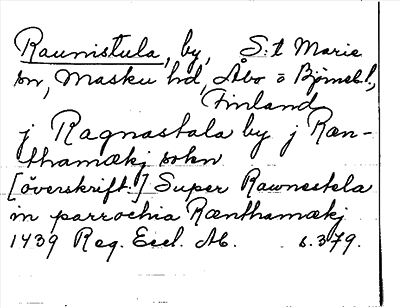 Raunistula, by, S:t Marie
sn, Masku hd, Åbo o Björneb.l.,
Finland
j Ragnastala by j Ræn-
thamækj sokn
[överskrift:] Super Rawnestela
in parrochia Rænthamækj
1439 Reg. Eccl. Ab. s. 379.